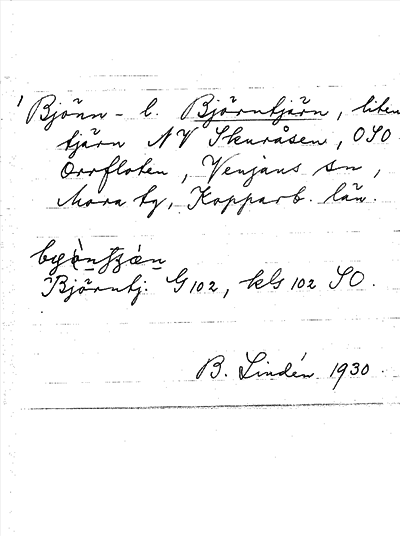 Bjönn- l. Björntjärn, liten
tjärn NV Skuråsen, OSO
Orrfloten, Venjans sn,
Mora tg, Kopparb. län.
Björntj. G 102, kG 102 SO.
B. Lindén 1930